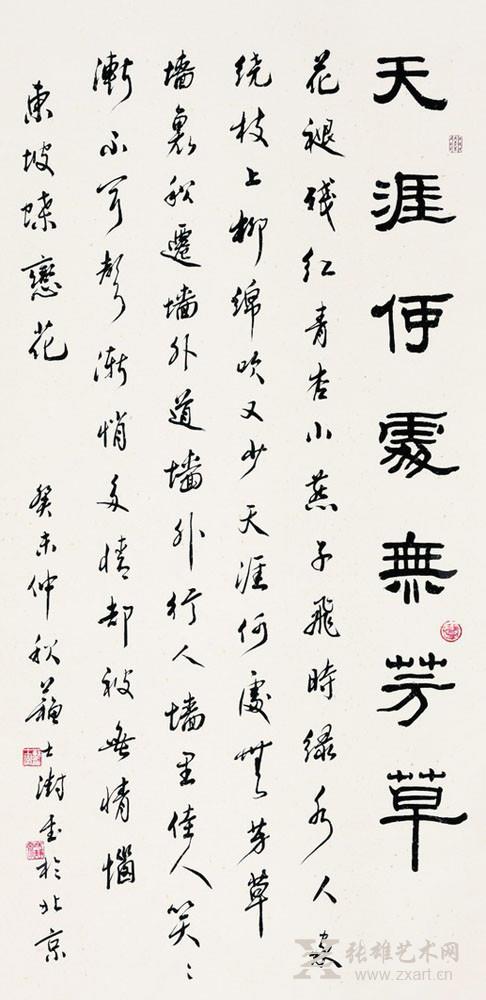 天涯何處無芳草
花褪残红青杏小燕子飛時緑水人家
绕枝上柳綿吹又少天涯何處無芳草
墙裏秋遷墙外道墙外行人墙里佳人笑〻
漸不闻聲漸悄多情却被無情惱
東坡蝶戀花 癸未仲秋蘇士澍書於北京
张雄艺术网
www.zxart.cn